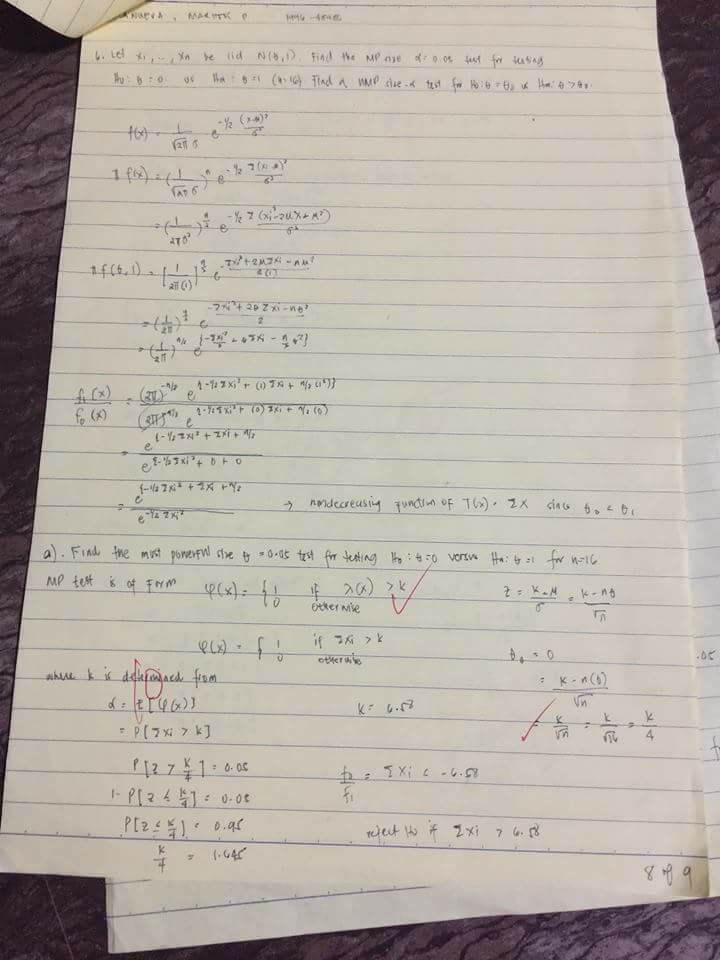 6. Let x₁, .., xn be iid N(θ,1). Find the MP size α=0.05 test for testing
H₀: θ=0 vs Ha: θ=1 (n=16) Find a UMP size-α test for H₀:θ=θ₀ vs Ha: θ>θ₀.
f(x) = 1/(√2π σ) e^(-1/2 (x-μ)²/σ²)
π f(x) = (1/(√2π σ))^n e^(-1/2 Σ(xi-μ)²/σ²)
= (1/(2πσ²))^(n/2) e^(-1/2 Σ(xi²-2μx+μ²)/σ²)
π f(θ,1) = [1/(2π(1))]^(n/2) e^((-Σxi²+2μΣxi-nμ²)/2(1))
= (1/2π)^(n/2) e^((-Σxi²+2θΣxi-nθ²)/2)
= (1/2π)^(n/2) e^{-Σxi²/2 + θΣxi - n/2 θ²}
f₁(x)/f₀(x) = (2π)^(-n/2) e^{-1/2 Σxi² + (1)Σxi + n/2 (1²)} / (2π)^(-n/2) e^{-1/2 Σxi² + (0)Σxi + n/2 (0)}
= e^{-1/2 Σxi² + Σxi + n/2} / e^{-1/2 Σxi² + 0 + 0}
= e^{-1/2 Σxi² + Σxi + n/2} / e^(-1/2 Σxi²) → nondecreasing function of T(x) = ΣX since θ₀ < θ₁
a). Find the most powerful size θ=0.05 test for testing H₀: θ=0 versus Ha: θ=1 for n=16
MP test is of form φ(x) = { 1 if λ(x) > k
0 otherwise
z = (k-μ)/σ = (k-nθ)/√n
φ(x) = { 1 if Σxi > k
0 otherwise
θ₀ = 0
= (k-n(0))/√n
= k/√n = k/√16 = k/4
where k is determined from
α = E[φ(x)] k = 6.58
= P[Σxi > k]
P[Z > k/4] = 0.05
f₂/f₁ = Σxi < -6.58
1-P[Z ≤ k/4] = 0.05
P[Z ≤ k/4] = 0.95 reject H₀ if Σxi > 6.58
k/4 = 1.645
8 of 9
.05